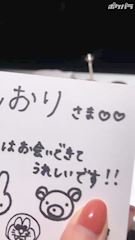 ポケパラ
おり さま♡♡
はお会いできて
うれしいです!!